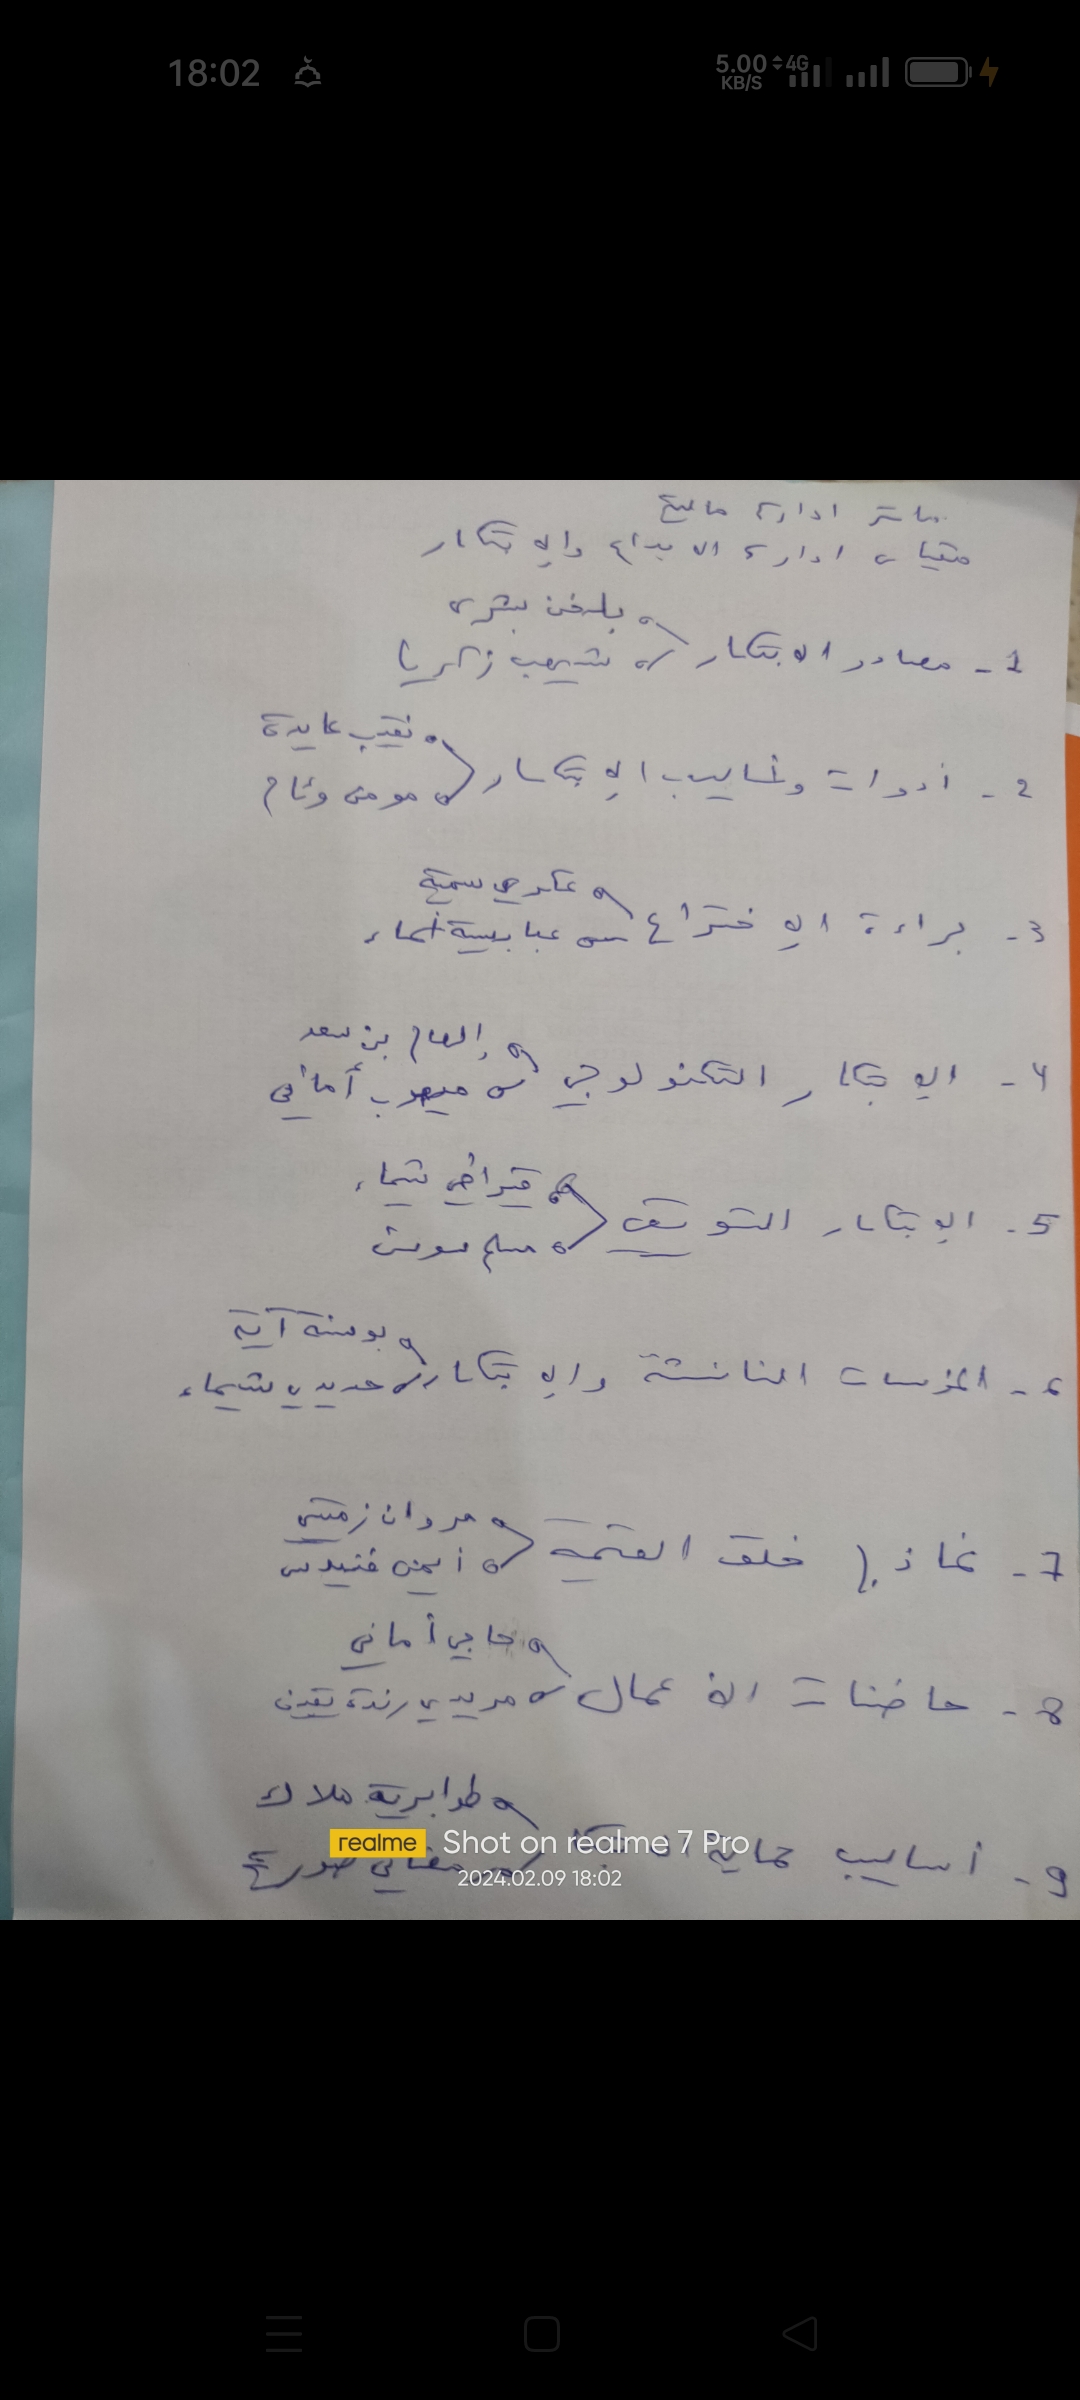 18:02
5.00 KB/S 4G
ماستر ادارة مالية
مقياس ادارة الابداع والابتكار
بلخن بشرى
1 - مصادر الابتكار
شهيب زكريا
نقيب عايدة
2 - أدوات وأساليب الابتكار
مومن وئام
عكوي سمية
3 - براءة الاختراع
عبابسية أسماء
إلهام بن سعد
4 - الابتكار التكنولوجي
ميهوب أماني
شيماء
5 - الابتكار التسويقي
مسلم
بوسنة آية
6 - المؤسسات الناشئة والابتكار
حديدي شيماء
مروان زميتي
7 - نماذج خلق القيمة
أيمن
حاجي أماني
8 - حاضنات الأعمال
مريدي رندة
طوابرية ملاك
9 - أساليب حماية
realme Shot on realme 7 Pro
2024.02.09 18:02